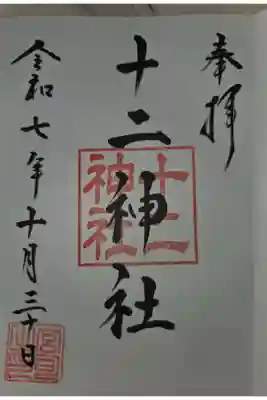 奉拝
十二神社
十二神社
令和七年十月三十日